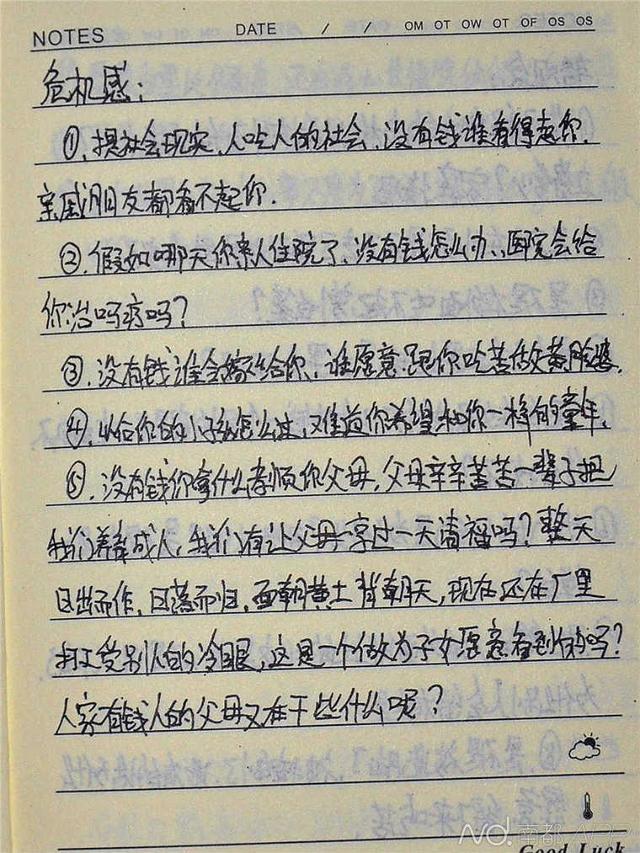 NOTES DATE / / OM OT OW OT OF OS OS
危机感：
①.提社会现实,人吃人的社会,没有钱谁看得起你.
亲戚朋友都看不起你.
②.假如哪天你亲人住院了,没有钱怎么办、医院会给
你治吗疗吗?
③.没有钱谁会嫁给你,谁愿意跟你吃苦做黄脸婆.
④.以后你的小孩怎么过,难道你希望和你一样的童年.
⑤.没有钱你拿什么孝顺你父母,父母辛辛苦苦一辈子把
我们养育成人,我们有让父母享过一天清福吗?整天
日出而作,日落而归,面朝黄土背朝天,现在还在厂里
打工受别人的冷眼,这是一个做为子女愿意看到的吗?
人家有钱人的父母又在干些什么呢?
Good Luck